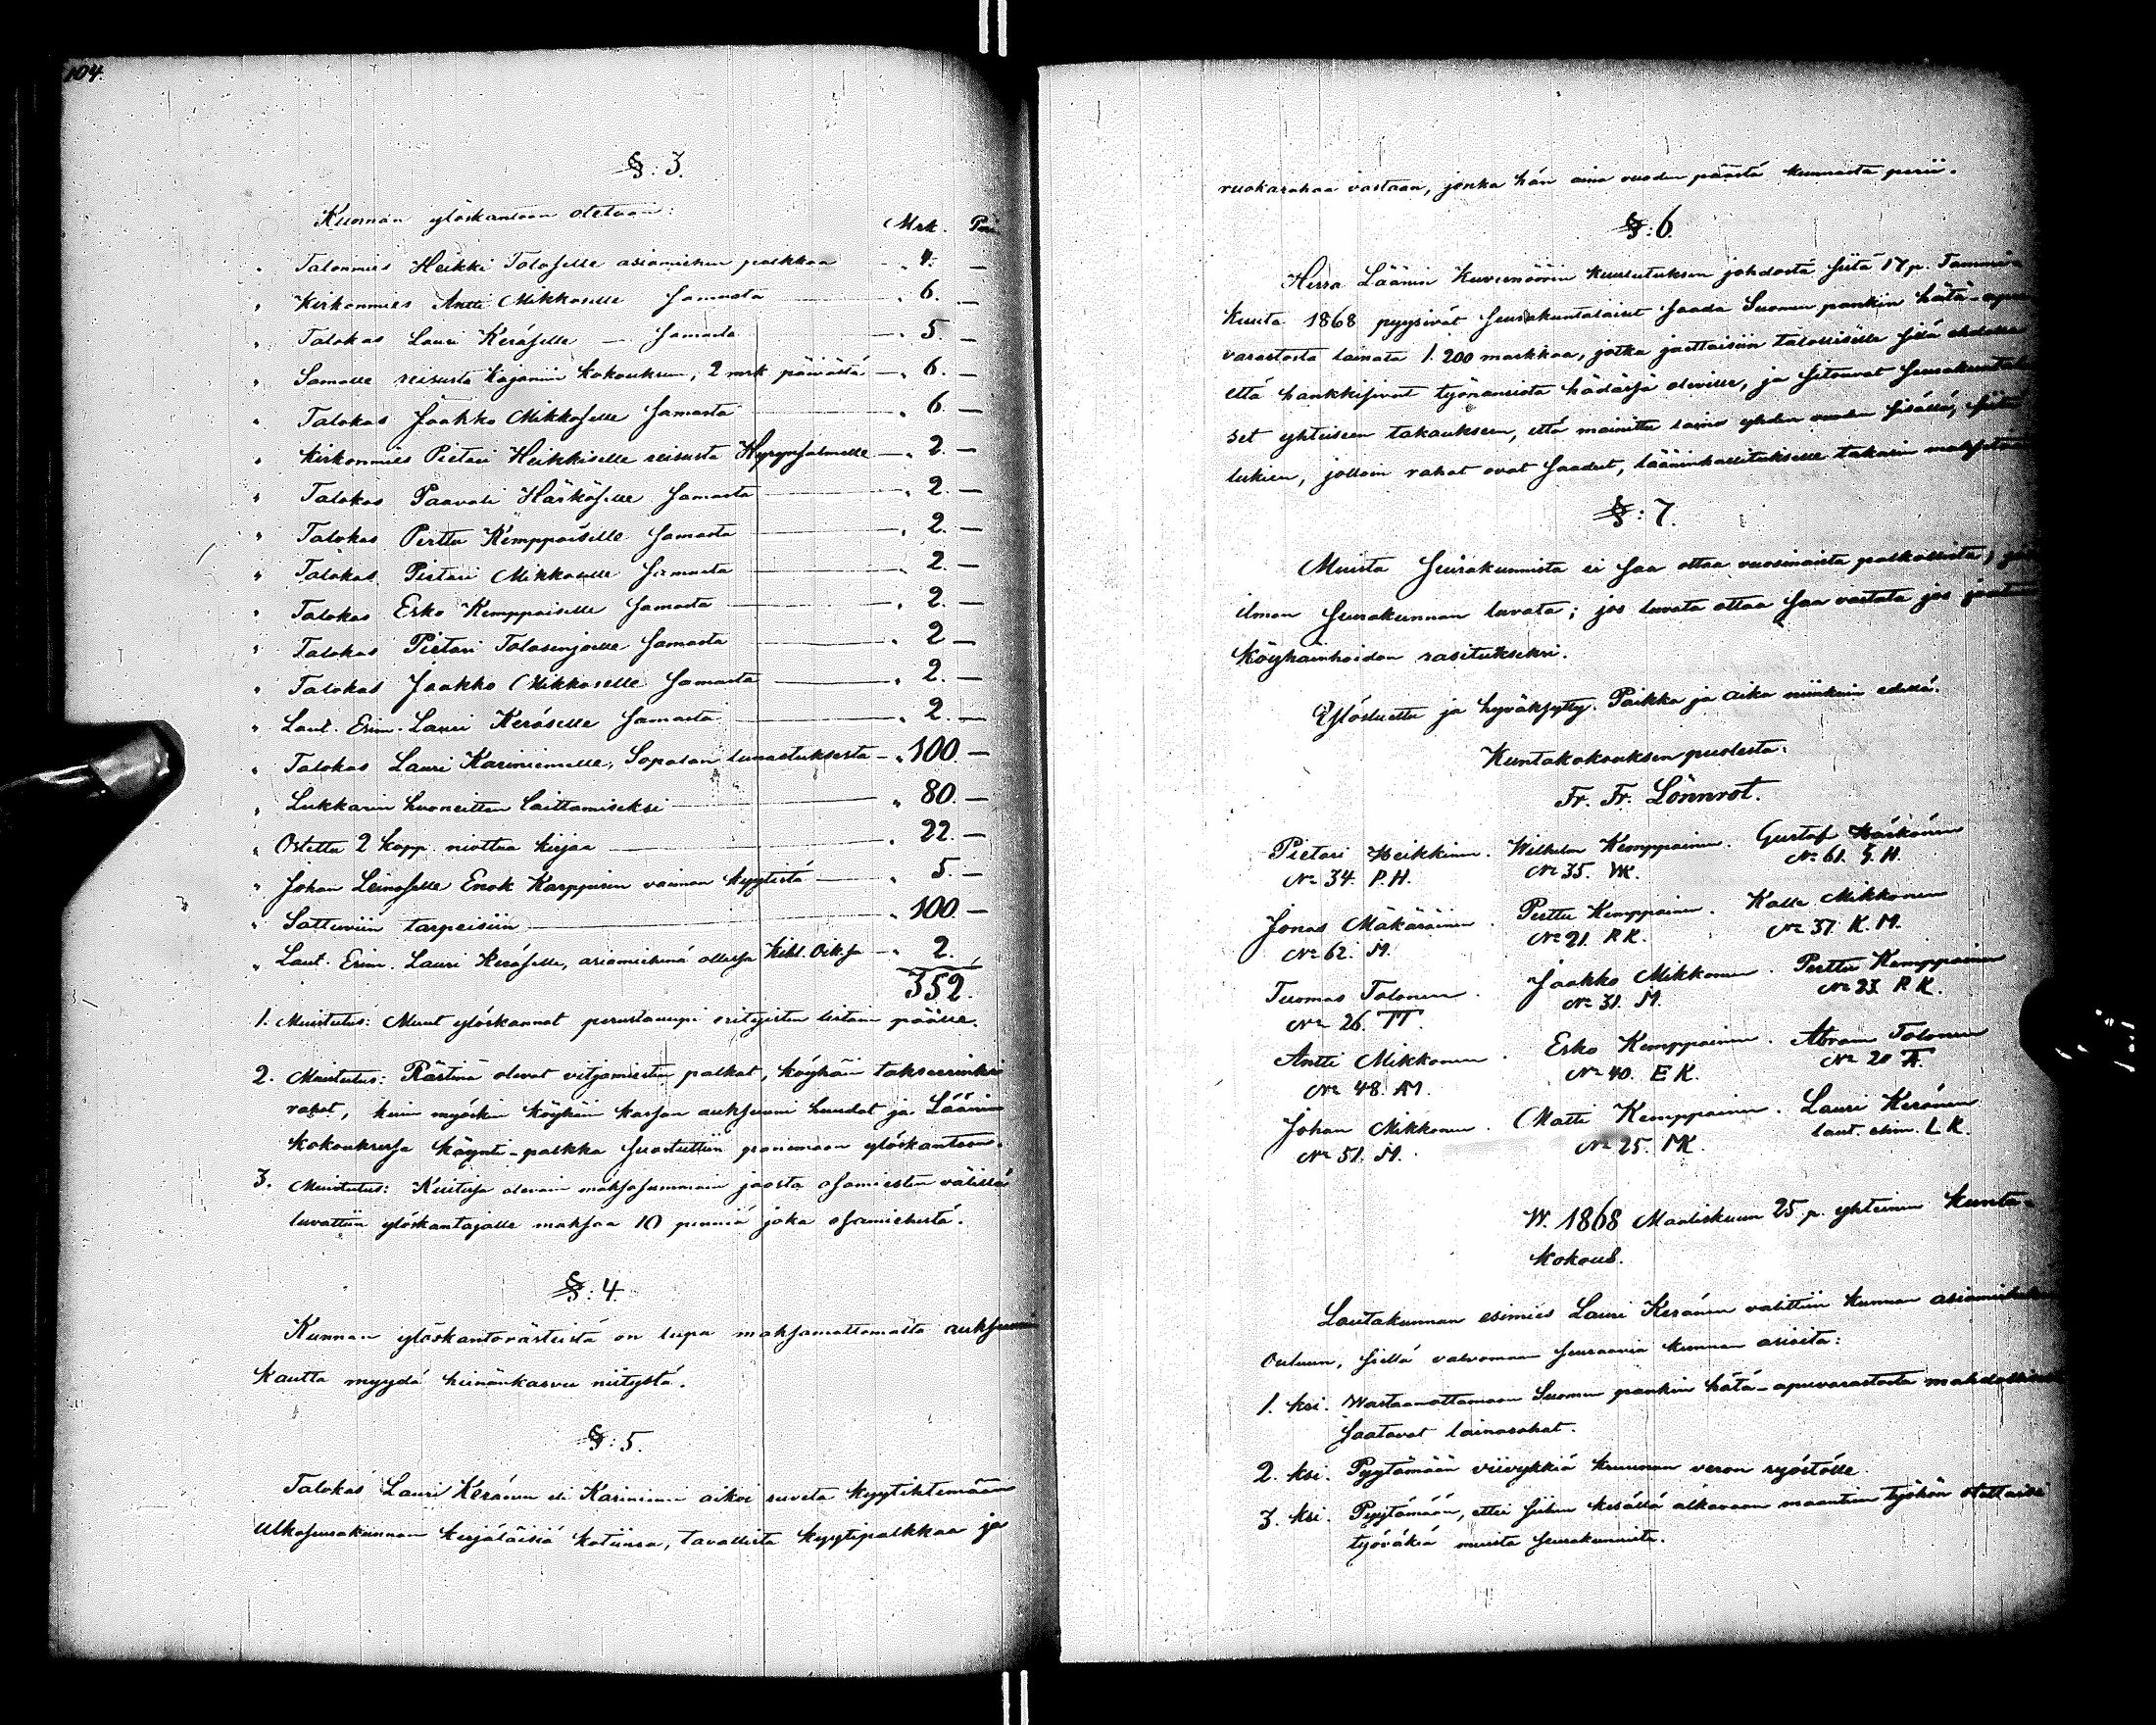 104.
§: 3.
Kunnan ylöskantoon otetaan:
Mrk. Pni
" Talonmies Heikki Tolaselle asiamiehen palkkaa — " 4. —
" Kirkonmies Antti Mikkoselle samasta — " 6. —
" Talokas Lauri Keräselle — samasta — " 5. —
" Samalle reisusta Kajaanin kokoukseen, 2 mrk päivästä — " 6. —
" Talokas Jaakko Mikkoselle samasta — " 6. —
" Kirkonmies Pietari Heikkiselle reisusta Hyrynsalmelle — " 2. —
" Talokas Paavali Härköselle samasta — " 2. —
" Talokas Perttu Kemppaiselle samasta — " 2. —
" Talokas Pietari Mikkoselle samasta — " 2. —
" Talokas Esko Kemppaiselle samasta — " 2. —
" Talokas Pietari Tolosenjoelle samasta — " 2 —
" Talokas Jaakko Mikkoselle samasta — " 2. —
" Laut. Esim. Lauri Keräselle samasta — " 2. —
" Talokas Lauri Kariniemelle, Sopalan lunastuksesta — " 100. —
" Lukkarin huoneitten laittamiseksi — " 80. —
" Ostettu 2 kapp. niottua kirjaa — " 22. —
" Johan Leinoselle Enok Karppisen vaimon kyytistä — " 5. —
" Sattuviin tarpeisiin — " 100 —
" Laut. Esim. Lauri Keräselle, asiamiehenä ollessa Kihl. Oik.sa — " 2.
352.
1. Muistutus: Muut ylöskannot perustaiupi erityisten listain päälle.
2. Muistutus: Rästinä olevat vitjamiesten palkat, köyhäin takseerinki
rahat, kuin myöskin köyhäin kassan auksuuni huudot ja Läänin
kokouksessa käynti-palkka suostuttiin panemaan ylöskantoon.
3. Muistutus: Kuitissa olevain maksosummain jaosta osamiesten välillä
luvattiin ylöskantajalle maksaa 10 penniä joka osamieheltä.
§: 4.
Kunnan ylöskantorästeistä on lupa maksamattomalta auksuuni
kautta myydä heinänkasvu niitystä.
§: 5.
Talokas Lauri Keränen eli Kariniemi aikoi ruveta kyytihtemään
Ulkoseurakunnan kerjäläisiä kotiinsa, tavallista kyytipalkkaa ja
ruokarahaa vastaan, jonka hän aina vuoden päästä kunnasta perii.
§: 6.
Herra Läänin Kuvernöörin kuulutuksen johdosta siitä 17 p. Tammi
kuuta 1868 pyysivät seurakuntalaiset saada Suomen pankin hätä-apu
varastosta lainata 1.200 markkaa, jotka jaettaisiin talollisille sillä ehdolla
että hankkisivat työnansiota hädässä oleville, ja sitoivat seurakuntalai
set yhteiseen takaukseen, että mainittu laina yhden vuoden sisällä, siitä
lukien, jolloin rahat ovat saadut, lääninhallitukselle takaisin maksetaan
§: 7.
Muista seurakunnista ei saa ottaa vuosinaista palkollista,
ilman seurakunnan luvata; jos luvata ottaa saa vastata jos joutuu
Köyhäinhoidon rasitukseksi.
Ylösluettu ja hyväksytty. Paikka ja aika niinkuin edellä.
Kuntakokouksen puolesta:
Fr. Fr. Lönnrot.
Pietari Heikkinen. Wilhelm Kemppainen. Gustaf Härkönen
No 34. P.H. No 35. WK. No 61. G.H.
Jonas Mäkäräinen. Perttu Kemppainen. Kalle Mikkonen
No 62. M. No 21. P.K. No 37. K.M.
Tuomas Tolonen. Jaakko Mikkonen. Perttu Kemppainen
No 26. TT. No 31. M. No 23. P.K.
Antti Mikkonen. Esko Kemppainen. Abram Tolonen
No 48. AM. No 40. E K. No 20 AT.
Johan Mikkonen. Matti Kemppainen. Lauri Keränen
No 51. M. No 25. MK. laut. esim. L K.
W. 1868 Maaliskuun 25 p. yhteinen kunta-
kokous.
Lautakunnan esimies Lauri Keränen valittiin kunnan asiamieheksi
Ouluun, siellä valvomaan seuraavia kunnan asioita:
1. ksi. Wastaanottamaan Suomen pankin hätä-apuvarastosta mahdollisesti
saatavat lainarahat.
2. ksi. Pyytämään viivykkiä kruunun veron ryöstölle.
3. ksi. Pyytämään, ettei siihen kesällä alkavaan maantien työhön otettaisi
työväkiä muista seurakunnista.